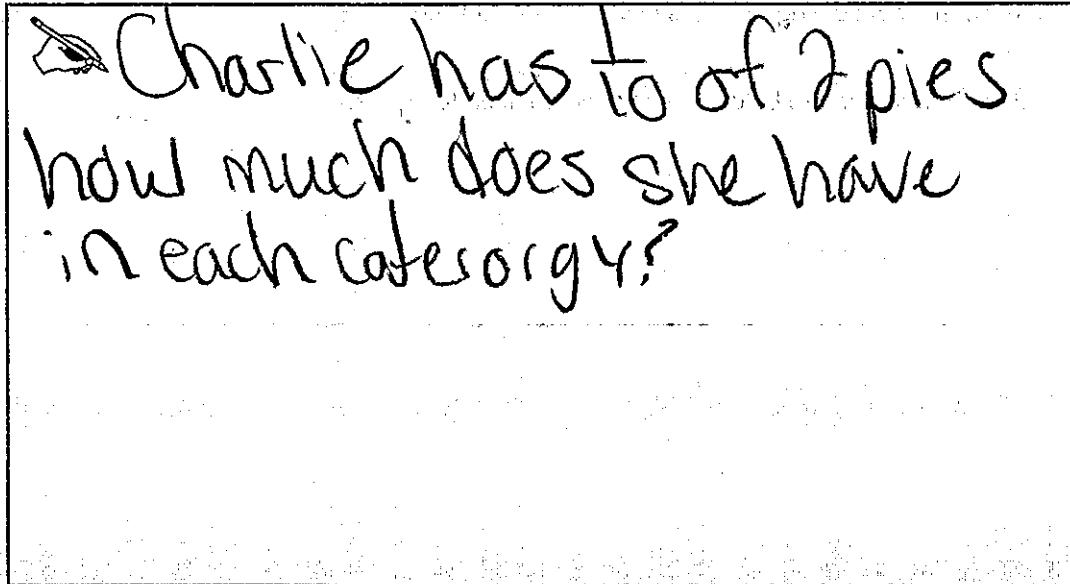 Charlie has 1/10 of 2 pies
how much does she have
in each catesorgy?